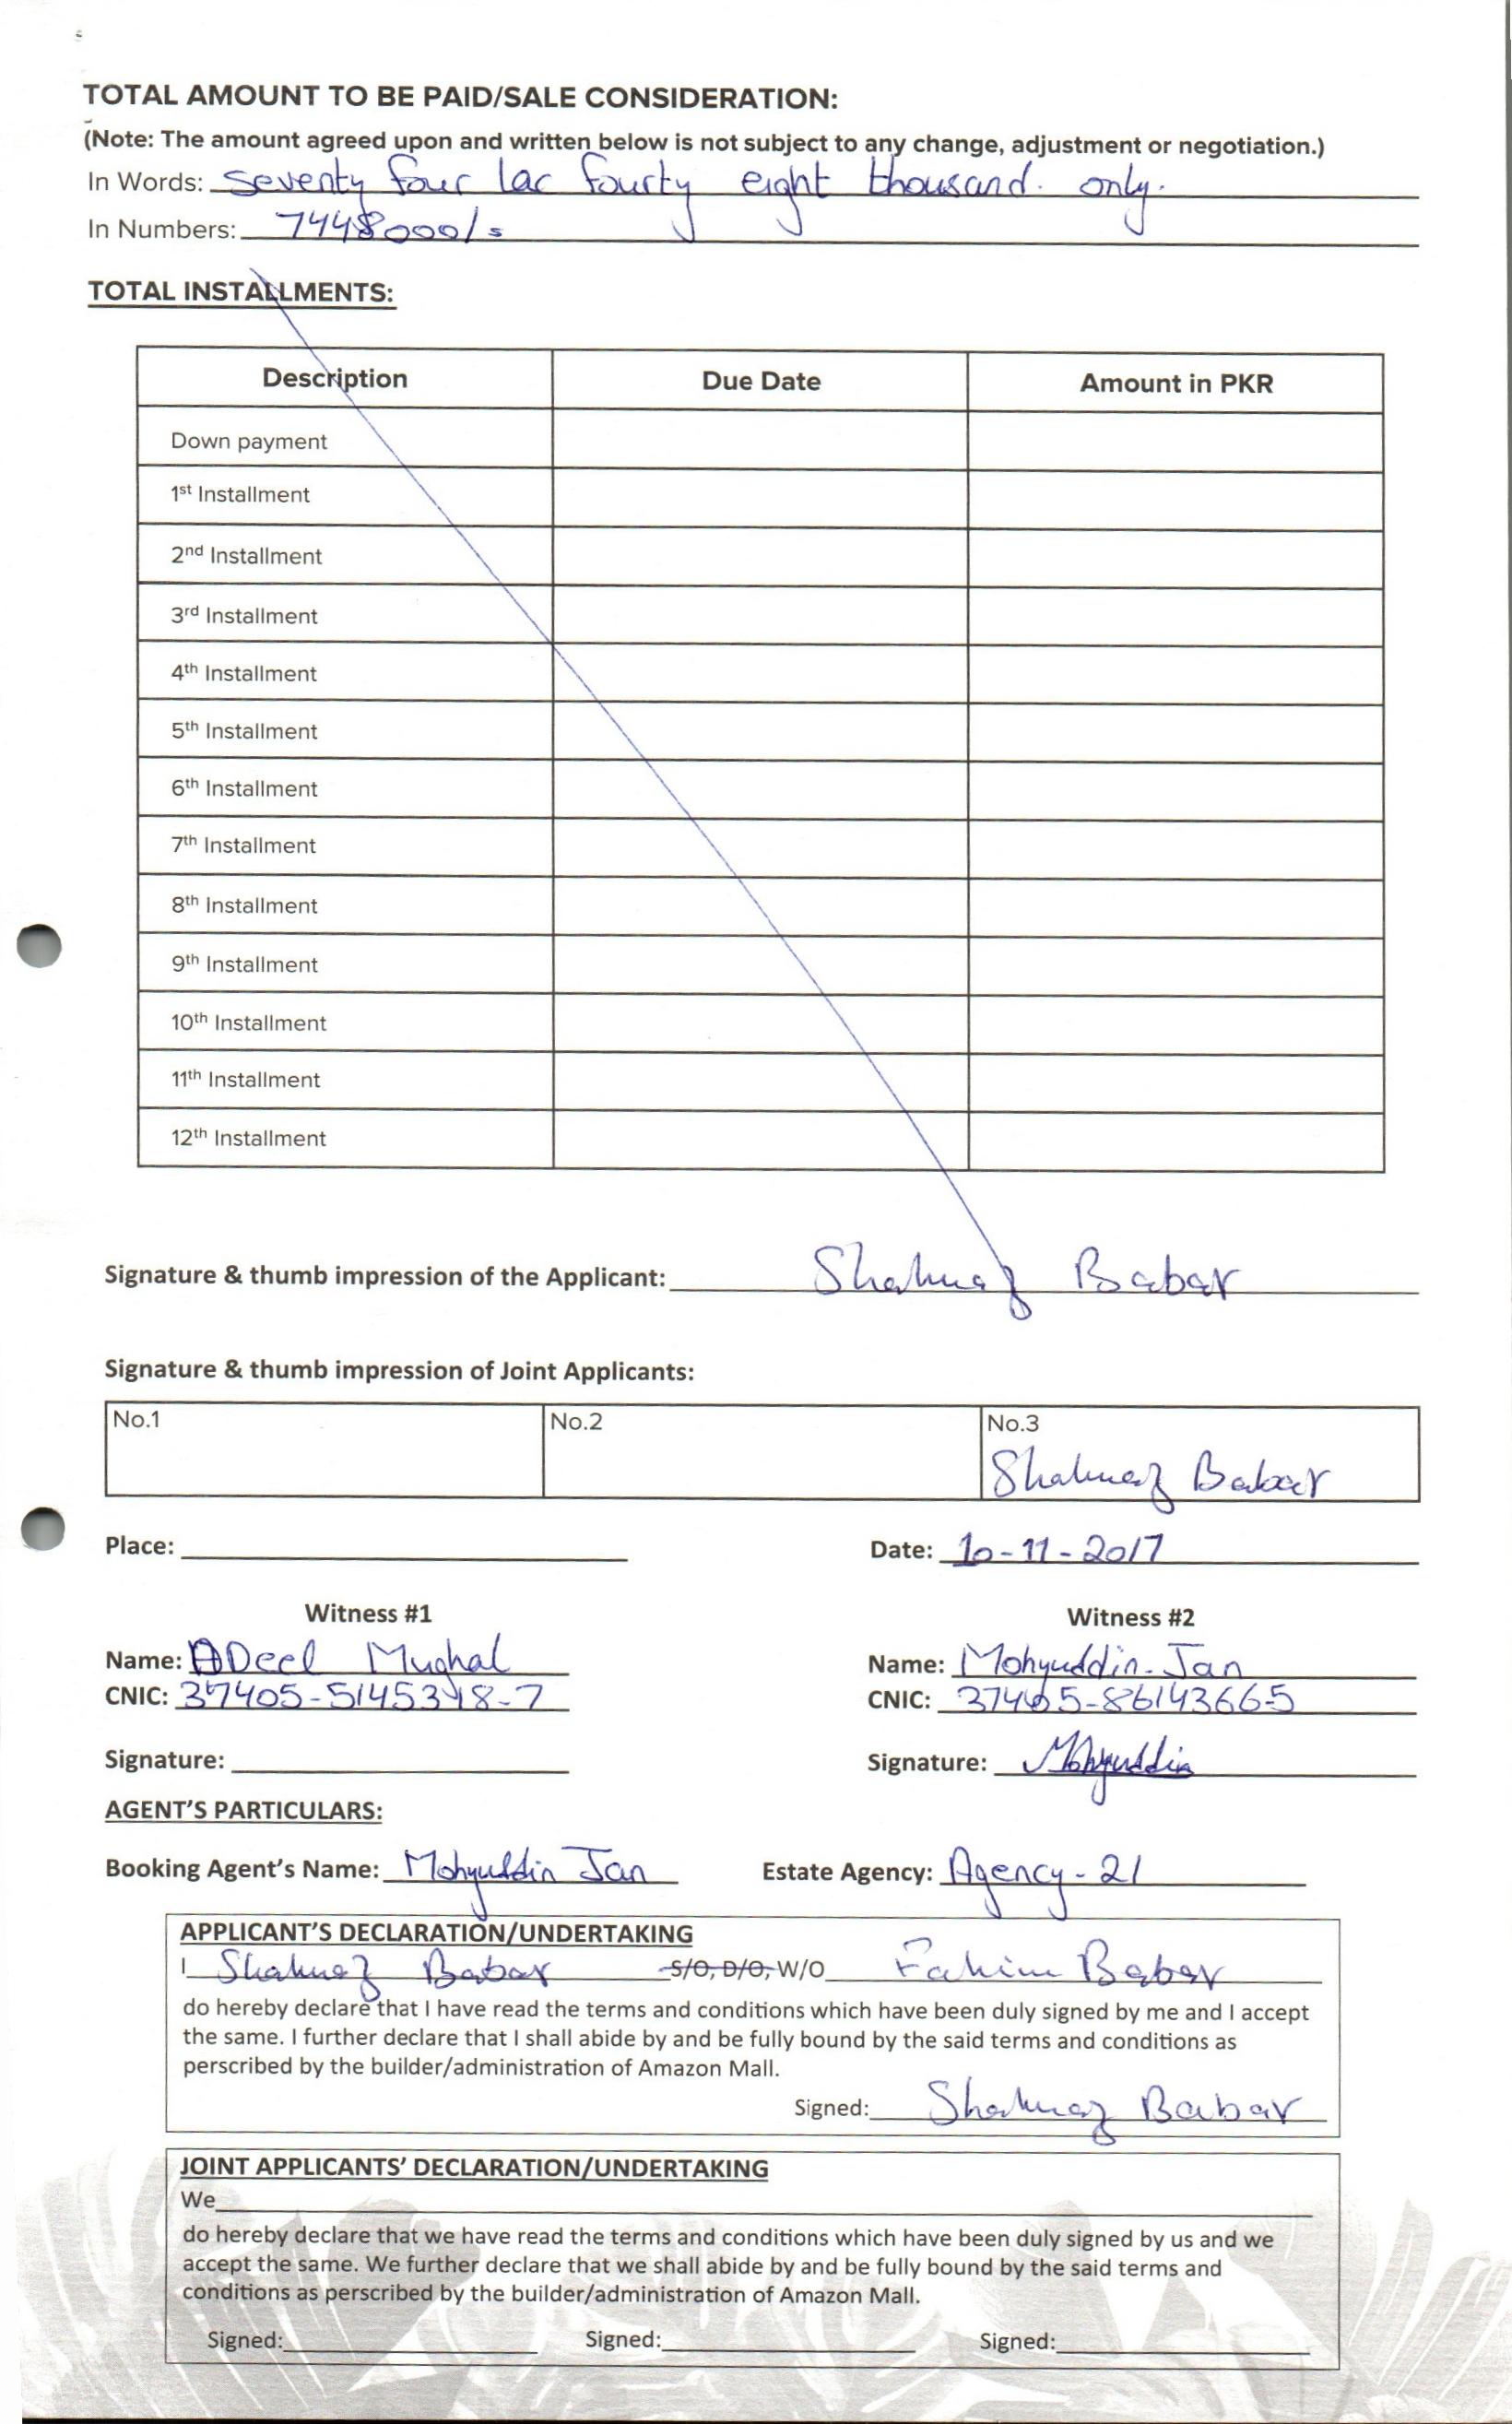 TOTAL AMOUNT TO BE PAID/SALE CONSIDERATION:
(Note: The amount agreed upon and written below is not subject to any change, adjustment or negotiation.)
In Words: Seventy four lac fourty eight thousand. only.
In Numbers: 7448000/s
TOTAL INSTALLMENTS:
Description Due Date Amount in PKR
Down payment
1st Installment
2nd Installment
3rd Installment
4th Installment
5th Installment
6th Installment
7th Installment
8th Installment
9th Installment
10th Installment
11th Installment
12th Installment
Signature & thumb impression of the Applicant: Shahnaz Babar
Signature & thumb impression of Joint Applicants:
No.1 No.2 No.3
Shahnaz Babar
Place: Date: 10-11-2017
Witness #1 Witness #2
Name: ADeel Mughal Name: Mohyuddin. Jan
CNIC: 37405-5145348-7 CNIC: 37405-86143665
Signature: Signature: Mohyuddin
AGENT'S PARTICULARS:
Booking Agent's Name: Mohyuddin Jan Estate Agency: Agency-21
APPLICANT'S DECLARATION/UNDERTAKING
I Shahnaz Babar S/O, D/O, W/O Fahim Babar
do hereby declare that I have read the terms and conditions which have been duly signed by me and I accept
the same. I further declare that I shall abide by and be fully bound by the said terms and conditions as
perscribed by the builder/administration of Amazon Mall.
Signed: Shahnaz Babar
JOINT APPLICANTS' DECLARATION/UNDERTAKING
We
do hereby declare that we have read the terms and conditions which have been duly signed by us and we
accept the same. We further declare that we shall abide by and be fully bound by the said terms and
conditions as perscribed by the builder/administration of Amazon Mall.
Signed: Signed: Signed: